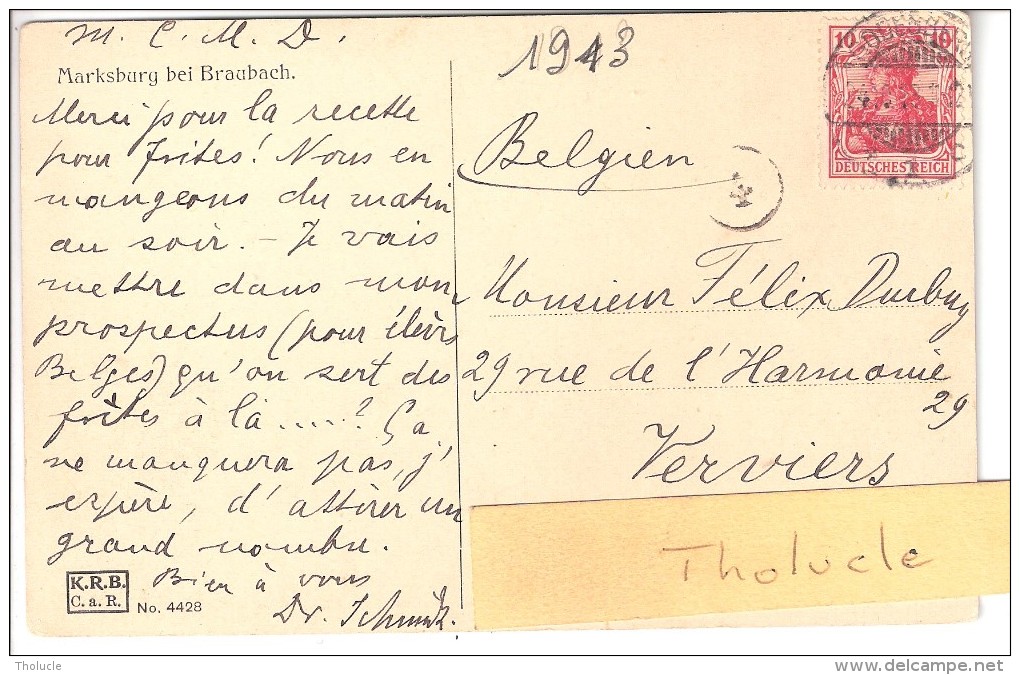 M. C. M. D.
Marksburg bei Braubach.
Merci pour la recette
pour frites! Nous en
mangeons du matin
au soir. - Je vais
mettre dans mon
prospectus (pour élèvs
Belges) qu'on sert des
frites à la .....? Ça
ne manquera pas, j'
espère, d'attirer un
grand nombre.
Bien à vous
Dr. Schmitz.
K.R.B.
C. a. R.
No. 4428
1913
Belgien
10 10
DEUTSCHES REICH
Monsieur Félix Duebuy
29 rue de l'Harmonie
29
Verviers
Tholucle
Tholucle
www.delcampe.net